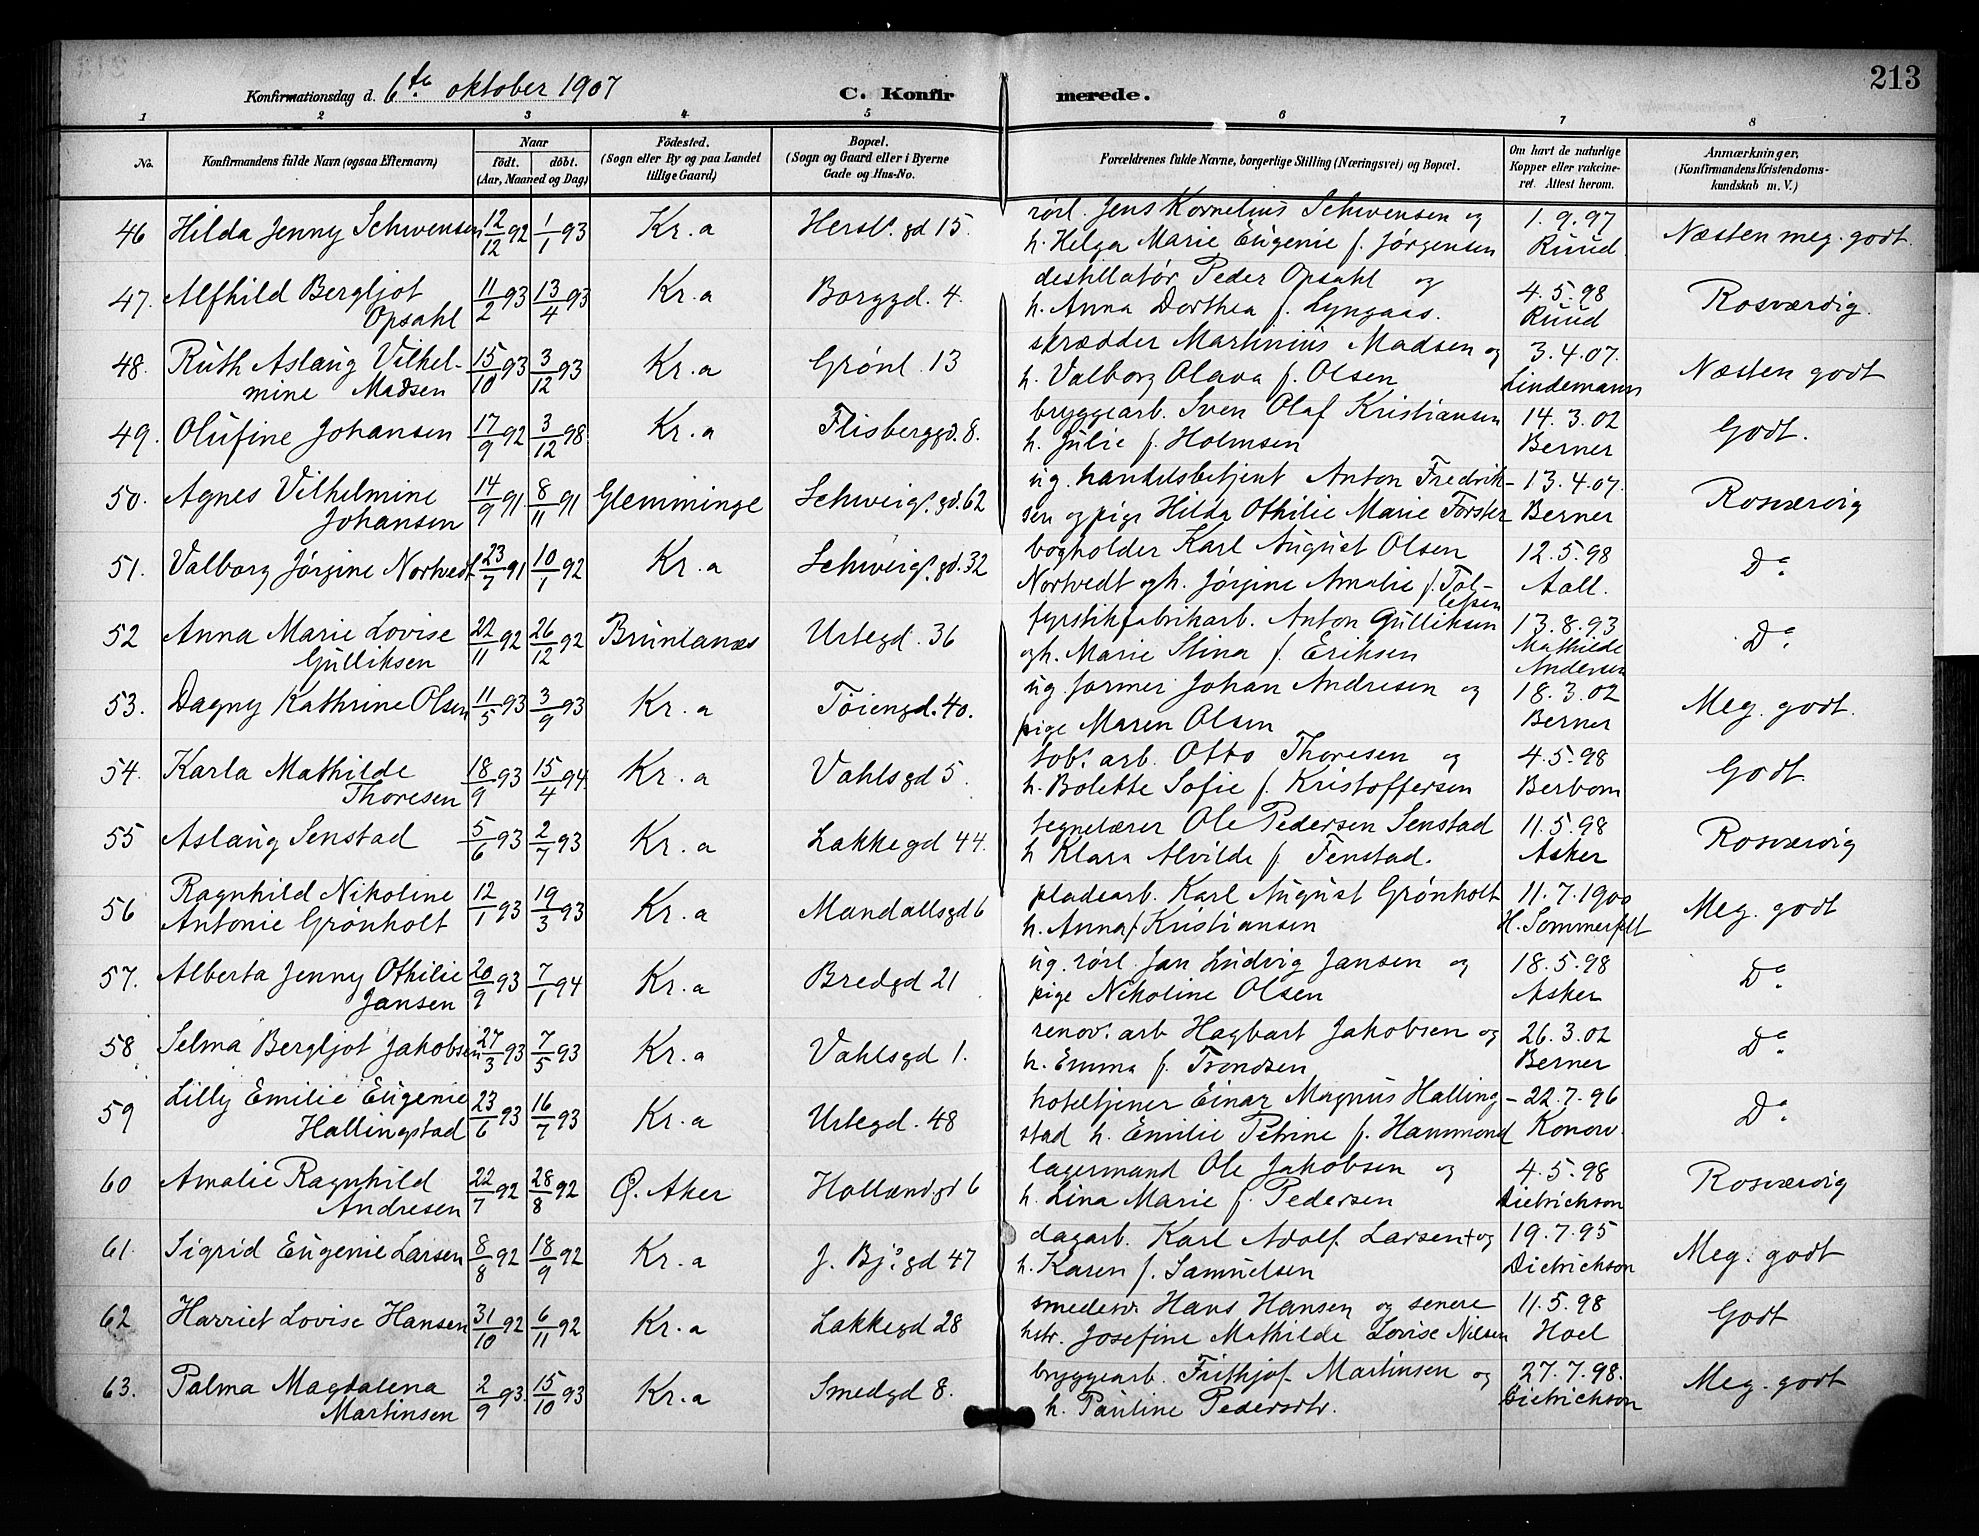 213
Konfirmationsdag d. 6te oktober 1907
C. Konfirmerede.
1 2 3 4 5 6 7 8
No. Konfirmandens fulde Navn (ogsaa Efternavn) Naar født. døbt. (Aar, Maaned og Dag) Fødested. (Sogn eller By og paa Landet tillige Gaard) Bopæl. (Sogn og Gaard eller i Byerne Gade og Hus-No. Forældrenes fulde Navne, borgerlige Stilling (Næringsvei) og Bopæl. Om havt de naturlige Kopper eller vakcineret. Attest herom. Anmærkninger, (Konfirmandens Kristendomskundskab m. V.)
46 Hilda Jenny Schwensen 12/12 92 1/1 93 Kr.a Hersl. gd 15. rørl. Jens Kornelius Schwensen og 1.9.97 Næsten meg. godt.
h. Helga Marie Eugenie f. Jørgensen Ruud
47. Alfhild Bergljot 11/2 93 13/4 93 Kr.a Borggd. 4. destillatør Peder Opsahl og 4.5.98 Rosværdig.
Opsahl h. Anna Dorthea f. Lyngaas. Ruud
48. Ruth Aslaug Vilhel- 15/10 93 3/12 93 Kr.a Grønl. 13 skrædder Martinius Madsen og 3.4.07. Næsten godt
mine Madsen h. Valborg Olava f. Olsen Lindemann
49. Olufine Johansen 17/9 92 3/12 98 Kr.a Flisberggd. 8. bryggearb. Sven Olaf Kristiansen 14.3.02 Godt.
h. Julie f. Holmsen Berner
50. Agnes Vilhelmine 14/9 91 8/11 91 Glemminge Schweig. gd. 62 ug. handelsbetjent Anton Fredrik- 13.4.07. Rosværdig
Johansen sen og pige Hilda Othilie Marie Førster Berner
51. Valborg Jørgine Nortvedt 23/7 91 10/1 92 Kr.a Schweig. gd. 32 bogholder Karl August Olsen 12.5.98 Do.
Nortvedt og h. Jørgine Amalie f. Tol- Aall.
lefsen
52 Anna Marie Lovise 22/11 92 26/12 92 Brunlanæs Urtegd. 36 fyrstikfabrikarb. Anton Gulliksen 13.8.93 Do.
Gulliksen og h. Marie Stina f. Eriksen Mathilde
Andersen
53. Dagny Kathrine Olsen 11/5 93 3/9 93 Kr.a Tøiengd. 40. ug. former Johan Andresen og 18.3.02 Meg. godt.
pige Maren Olsen Berner
54. Karla Mathilde 18/9 93 15/4 94 Kr.a Vahlsgd 5. tob. arb. Otto Thoresen og 4.5.98 Godt.
Thoresen h. Bolette Sofie f. Kristoffersen Berbom
55 Aslaug Senstad 5/6 93 2/7 93 Kr.a Lakkegd 44. tegnelærer Ole Pedersen Senstad 11.5.98 Rosværdig
h Klara Alvilde f. Fenstad. Asker
56 Ragnhild Nikoline 12/1 93 19/3 93 Kr.a Mandallsgd 6 pladearb. Karl August Grønholt 11.7.1900 Meg. godt
Antonie Grønholt h. Anna f Kristiansen H. Sommerfelt
57. Alberta Jenny Othilie 20/9 93 7/1 94 Kr.a Bredgd 21 ug. rørl. Jan Ludvig Jansen og 18.5.98 Do.
Jansen pige Nikoline Olsen Asker
58 Selma Bergljot Jakobsen 27/3 93 7/5 93 Kr.a Vahlsgd 1. renov. arb Hagbart Jakobsen og 26.3.02 Do.
h. Emma f. Trondsen Berner
59 Lilly Emilie Eugenie 23/6 93 16/7 93 Kr.a Urtegd. 48 hoteltjener Einar Magnus Halling- 22.7.96 Do.
Hallingstad stad h. Emilie Petrine f. Hammond Konow.
60 Amalie Ragnhild 22/7 92 28/8 92 Ø. Aker Hollændgd 6 lagermand Ole Jakobsen og 4.5.98 Rosværdig
Andresen h. Lina Marie f. Pedersen Dietrichson
61. Sigrid Eugenie Larsen 8/8 92 18/9 92 Kr.a J. Bj. gd 47 dagarb. Karl Adolf Larsen + og 19.7.95 Meg. godt
h. Karen f. Samuelsen Dietrichson
62 Harriet Lovise Hansen 31/10 92 6/11 92 Kr.a Lakkegd 28 smedesv. Hans Hansen og senere 11.5.98 Godt
hstr. Josefine Mathilde Lovise Nilsen Hoel
63. Palma Magdalena 2/9 93. 15/10 93 Kr.a Smedgd 8. bryggearb. Frithjof Martinsen og 27.7.98. Meg. godt
Martinsen h. Pauline Pedersdtr. Dietrichson